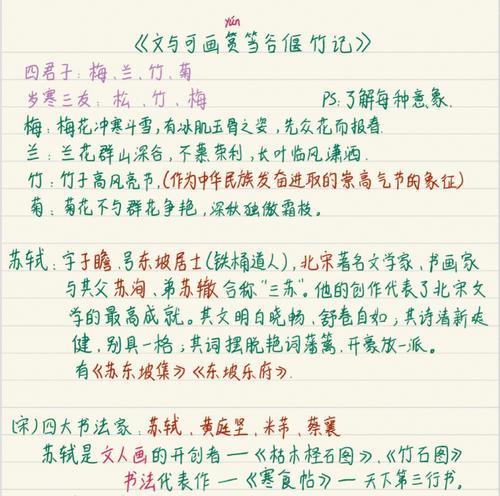 yún
《文与可画筼筜谷偃竹记》
四君子：梅、兰、竹、菊
岁寒三友：松、竹、梅 PS：了解每种意象.
梅：梅花冲寒斗雪，有冰肌玉骨之姿，先众花而报春.
兰：兰花群山深谷，不慕荣利，长叶临风潇洒.
竹：竹子高风亮节，(作为中华民族发奋进取的崇高气节的象征)
菊：菊花不与群花争艳，深秋独傲霜枝。
苏轼：字子瞻，号东坡居士(铁桶道人)，北宋著名文学家、书画家
与其父苏洵、弟苏辙合称“三苏”。他的创作代表了北宋文
学的最高成就。其文明白晓畅，舒卷自如；其诗清新爽
健，别具一格；其词摆脱艳词藩篱，开豪放一派。
有《苏东坡集》《东坡乐府》.
(宋)四大书法家：苏轼、黄庭坚、米芾、蔡襄
苏轼是文人画的开创者—《枯木怪石图》、《竹石图》
书法代表作—《寒食帖》—天下第三行书。